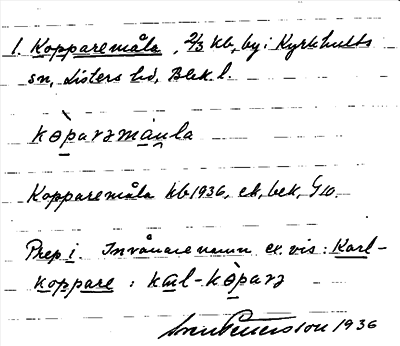 1. Kopparemåla, 2/3 kb, by i Kyrkhults
sn, Listers hd, Blek. l.
kɵ̀parəmå̱u̯la
Kopparemåla kb 1936, ek, bek, G10.
Prep i. Invånarenamn ex. vis: Karl-
koppare : kal-kɵ̀parə
1936